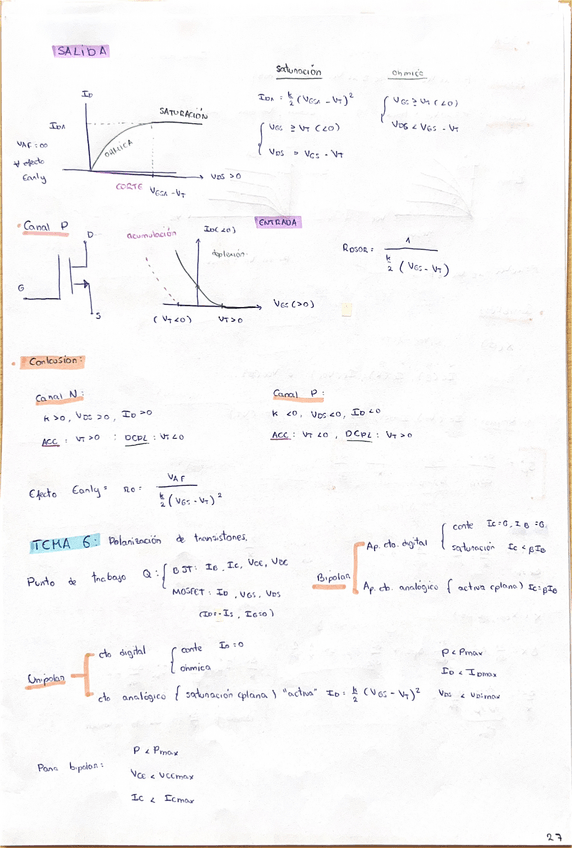 SALIDA
saturación
ohmica
ID
IDA
SATURACIÓN
OHMICA
VAF = ∞
∄ efecto
Early
VDS > 0
CORTE VGSA - VT
IDA = k/2 (VGSA - VT)²
{ VGS ≥ VT (<0)
VDS ≥ VGS - VT
{ VGS ≥ VT (<0)
VDS < VGS - VT
• Canal P
D
G
S
ENTRADA
acumulación
ID (<0)
deplexión
VGS (>0)
(VT<0) VT>0
RDSON = 1 / (k/2 (VGS - VT))
• Conlcusion:
Canal N:
K>0, VDS>0, ID>0
ACC : VT>0 : DCPL : VT<0
Canal P:
K<0, VDS<0, ID<0
ACC : VT<0, DCPL : VT>0
Efecto Early = ro = VAF / (k/2 (VGS - VT)²)
TEMA 6: Polarización de transistores.
Punto de trabajo Q: { BJT: IB, IC, VCE, VBE
MOSFET: ID, VGS, VDS
(ID=IS, IG=0)
Bipolar
Ap. cto. digital { corte IC=0, IB=0.
saturación IC < βIB
Ap. cto. analógico { activa (plana) IC=βIB
Unipolar
cto digital { corte ID=0
ohmica
cto analógico { saturación (plana) "activa" ID = k/2 (VGS - VT)²
P < Pmax
ID < IDmax
VDS < VDSmax
Para bipolar:
P < Pmax
VCE < VCEmax
IC < ICmax
27